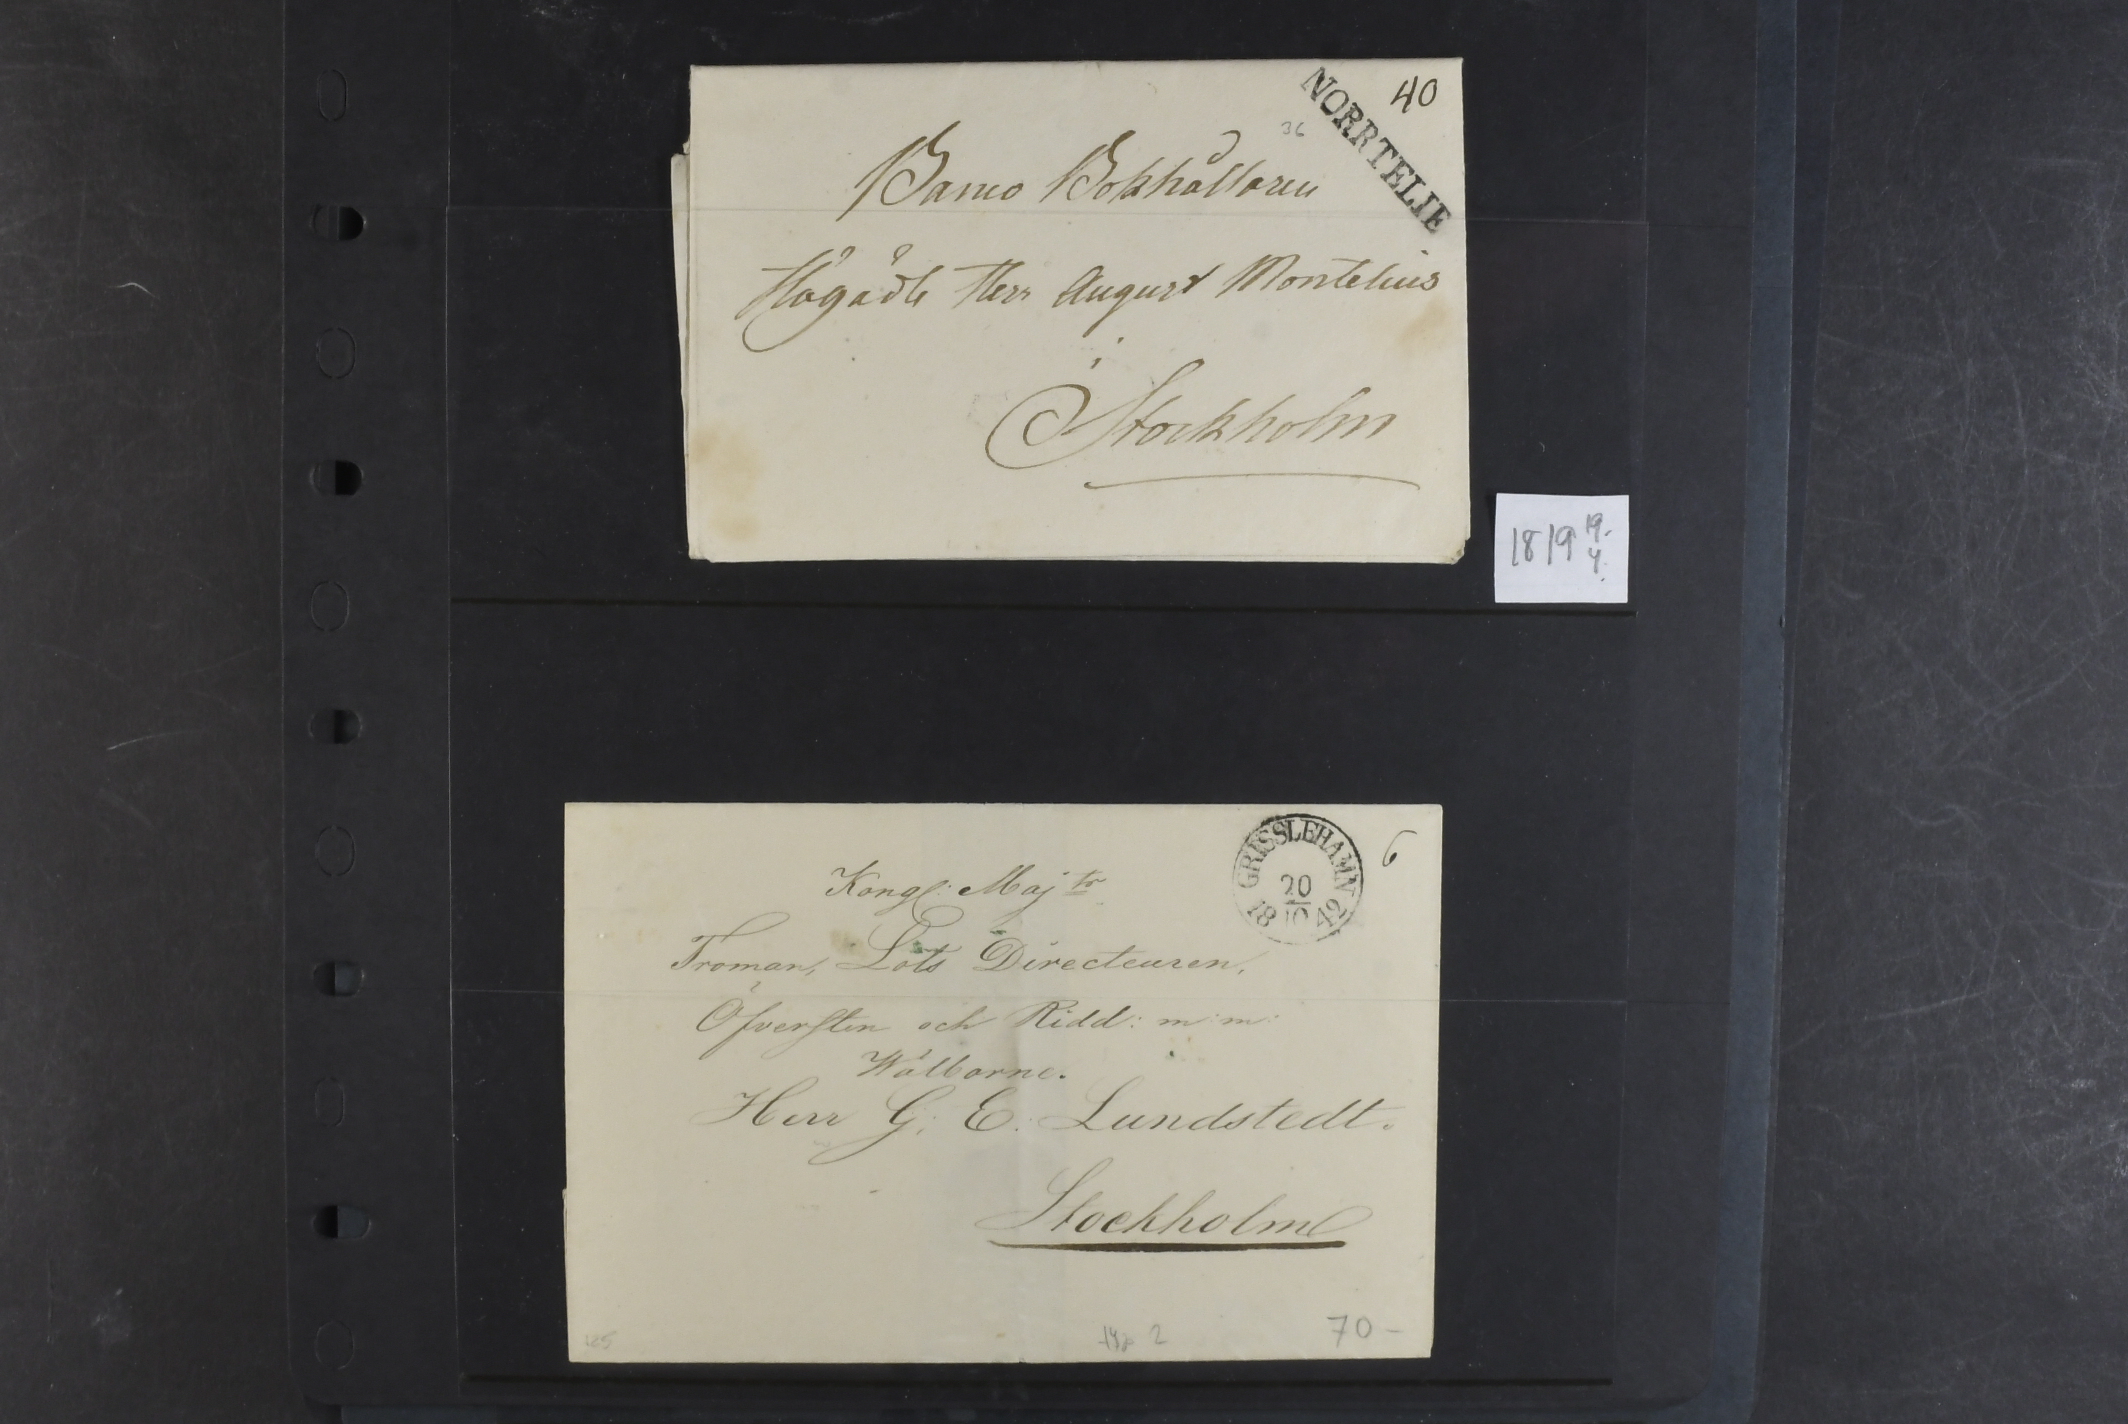 NORRTELJE
40
36
Banco Bokhållaren
Högädle Herr August Montelius
i
Stockholm
1819 19.
4.
GRISSLEHAMN
20
18 10 42
6
Kongl: Maj tr
Troman, Lots Directeuren,
Öfversten och Ridd: m:m:
Wälborne.
Herr G: E: Lundstedt.
Stockholm
typ 2
70-